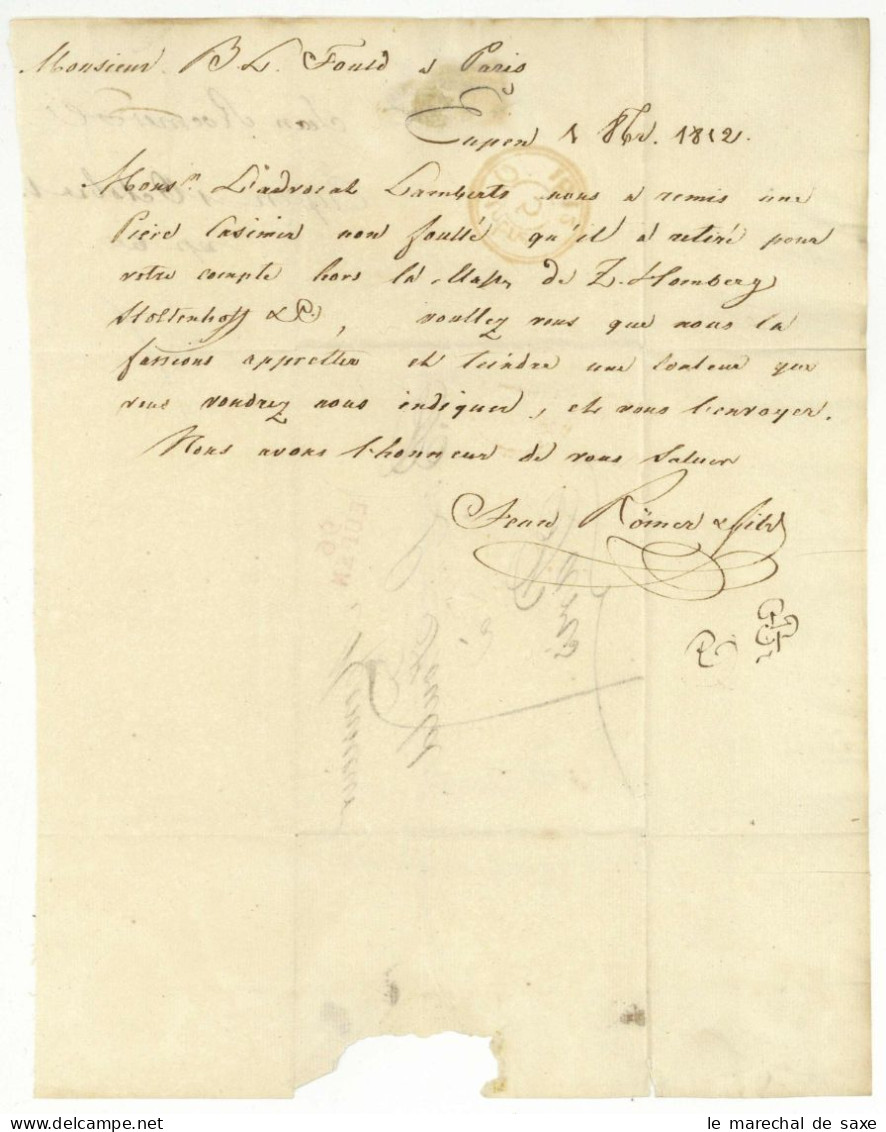 Monsieur B L. Fould à Paris
Eupen 1 8br. 1812.
Monsr. L'advocat Lamberts nous a remis une
Piéce Casimir non foullé qu'il à retiré pour
votre compte hors la Masse de Z. Homberg
Stoltenhoff & Cie, voullez vous que nous la
fassions appretter et teindre une Couleur que
vous voudrez nous indiquer, et vous l'envoyer.
Nous avons l'honneur de vous saluer
Jean Römer & fils
le marechal de saxe